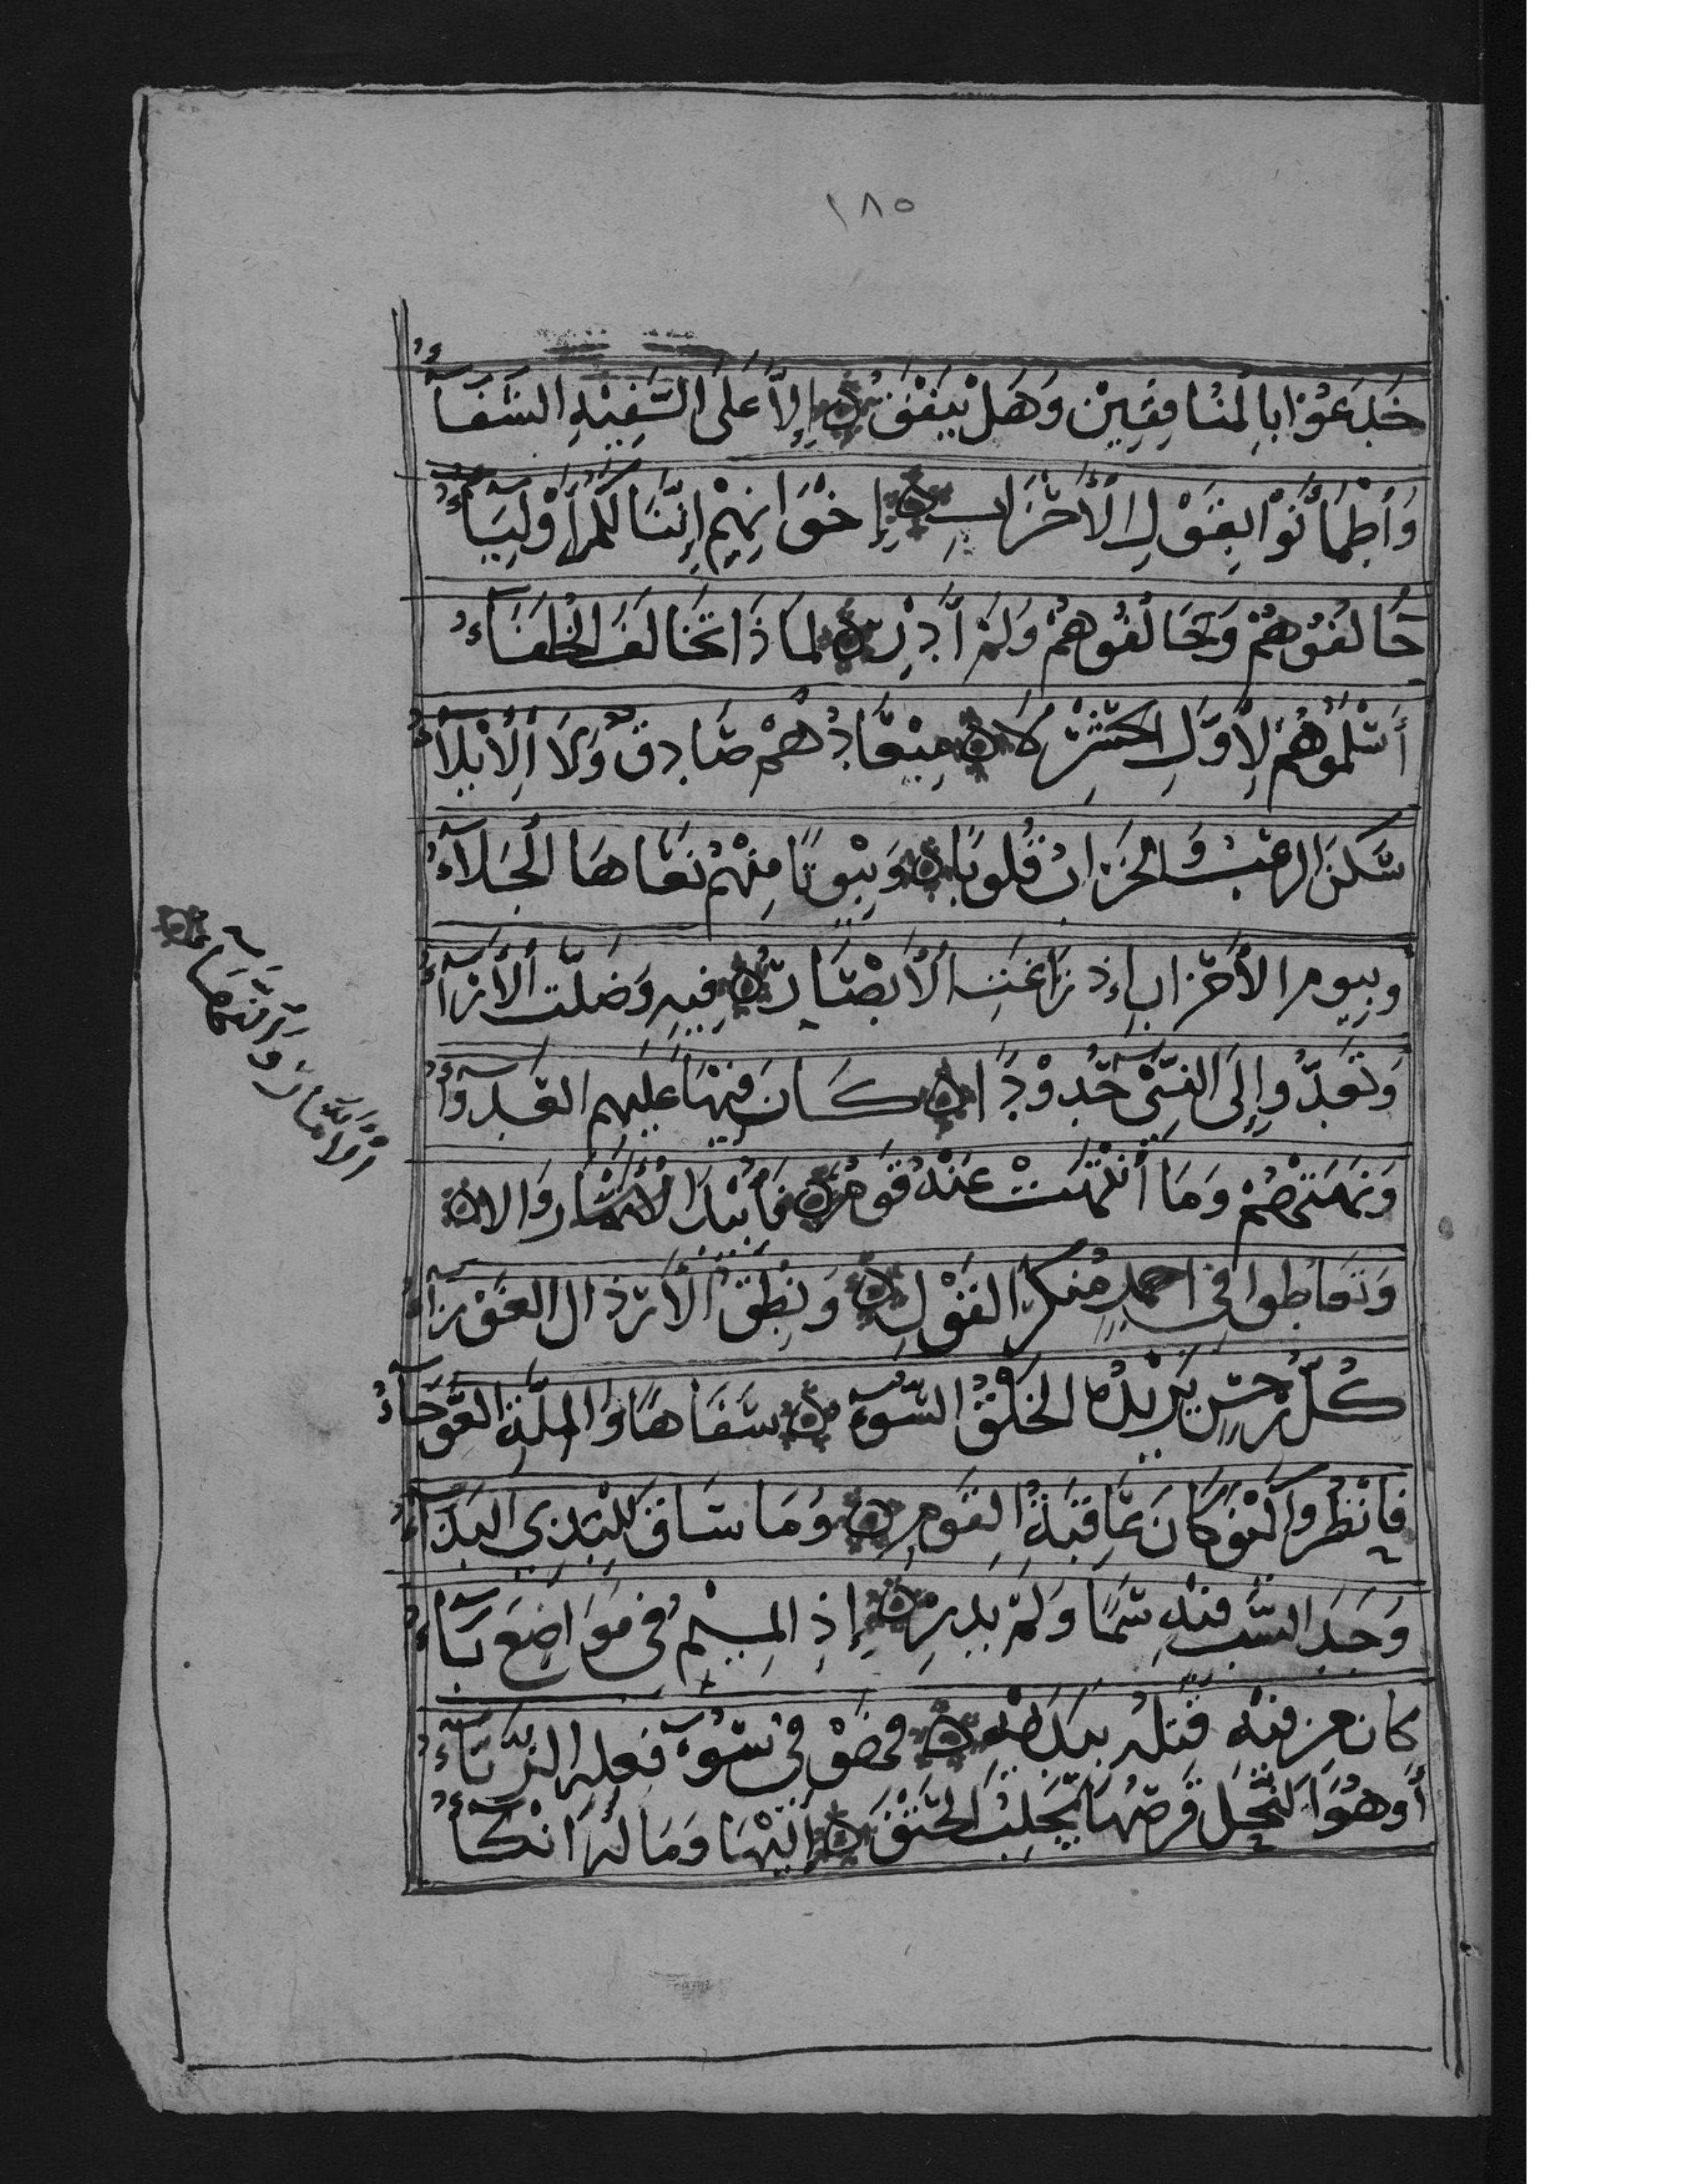 ١٨٥
خَدَعُوْا بِالْمُنَافِقِيْنَ وَهَلْ يَنْفُقُ إِلَّا عَلَى السَّفِيْهِ الشَّقَآءُ
وَاطْمَأَنُّوْا بِقَوْلِ الْأَحْزَابِ إِخْوَانِهِمْ إِنَّنَا لَكُمْ أَوْلِيَآءُ
حَالَفُوْهُمْ وَخَالَفُوْهُمْ وَلَمْ أَدْرِ لِمَاذَا تَخَالَفَ الْحُلَفَآءُ
أَسْلَمُوْهُمْ لِأَوَّلِ الْحَشْرِ لَا مِيْعَادُهُمْ صَادِقٌ وَلَا الْإِيْلَآءُ
سَكَنَ الرُّعْبُ وَالْخَرَابُ قُلُوبًا وَبُيُوْتًا مِنْهُمْ نَعَاهَا الْجَلَآءُ
وبِيومِ الأَحْزَابِ إِذْ زَاغَتِ الْأَبْصَارُ فِيهِ وَضَلَّتِ الْأَرَآءُ
وَتَعَدَّوا إِلَى النَّبِيِّ حُدُوْدًا كَانَ فِيْهَا عَلَيْهِمُ الْعَدْوَآءُ
وَنَهَتْهُمْ وَمَا انْتَهَتْ عَنْهُ قَوْمٌ فَأُبِيْدَ الْأَمَّارُ وَالا
الْأَمَّارُ وَالنَّهَآءُ
وَتَعَاطَوا فِي أَحْمَدٍ مُنْكَرَ الْقَوْلِ وَنُطْقُ الْأَرَاذِلِ الْعَوْرَآءُ
كُلُّ رِجْسٍ يَزِيْدُهُ الْخُلُقُ السُّوْءُ سَفَاهًا وَالْمِلَّةُ الْعَوْجَآءُ
فَانْظُرُوا كَيْفَ كَانَ عَاقِبَةُ الْقَوْمِ وَمَا سَاقَ لِلْبَذِيِّ الْبَذَآءُ
وَجَدَ السَّبَّ فِيْهِ سَمًّا وَلَمْ يَدْرِ إِذِ الْمِيْمُ فِي مَوَاضِعَ بَآءُ
كَانَ مِنْ فِيْهِ قَتْلُهُ بِيَدَيْهِ فَهْوَ فِي سُوْءِ فِعْلِهِ الزَّبَّآءُ
أَوْ هُوَ النَّحْلُ قَرْصُهَا يَجْلِبُ الْحَتْفَ إِلَيْهَا وَمَا لَهُ انْكَآءُ